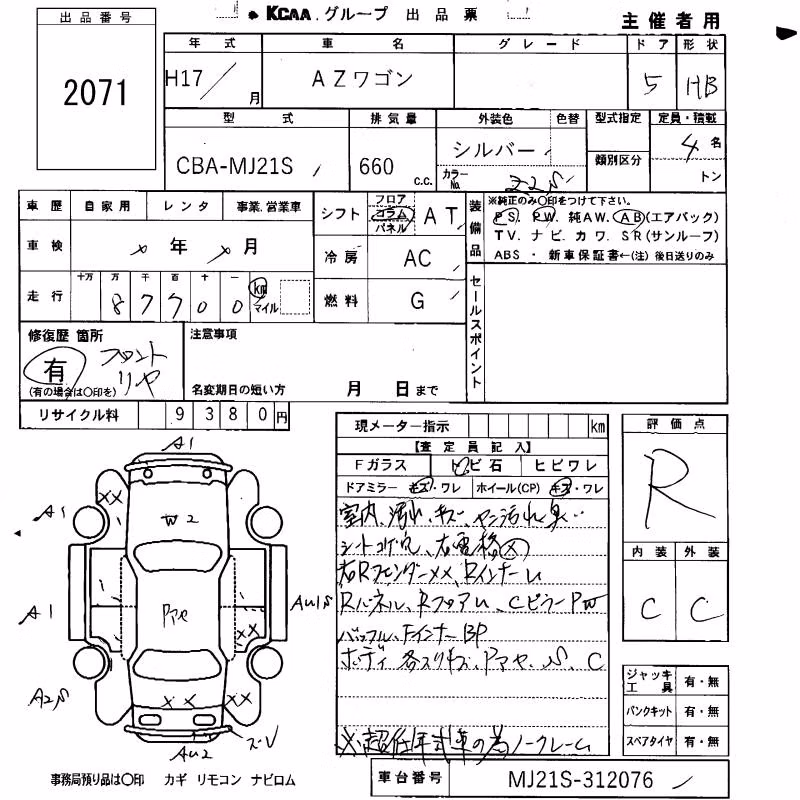 KCAA.グループ 出品票
主催者用
出品番号
2071
年式 車名 グレード ドア 形状
H17/ 月 AZワゴン 5 HB
型式 排気量 外装色 色替 型式指定 定員・積載
CBA-MJ21S 660 c.c. シルバー 4 名
カラーNo. Z2S 類別区分 トン
車歴 自家用 レンタ 事業.営業車
車検 年 月
走行 十万 万 千 百 十 一
8 7 7 0 0 km マイル
シフト フロア コラム パネル AT
冷房 AC
燃料 G
装備品
※純正のみ〇印をつけて下さい。
PS. PW. 純AW. AB(エアバック)
TV. ナビ. カワ. SR(サンルーフ)
ABS ・ 新車保証書←(注) 後日送りのみ
セールスポイント
修復歴 箇所
有 フロント
リヤ
(有の場合は〇印を)
注意事項
名変期日の短い方 月 日まで
リサイクル料 9 3 8 0 円
現メーター指示 km
【査定員記入】
Fガラス トビ石 ヒビワレ
ドアミラー キズ・ワレ ホイール(CP) キズ・ワレ
室内、汚れ、キズ、ヤニ汚れ臭
シートコゲ穴、右電格X
右Rフェンダーxx、Rインナーム
Rパネル、Rフロアム、CピラーPW
バッフル、FインナーBP
ボディ各スリキズ
※超低年式車の為ノークレーム
評価点
R
内装 外装
C C
ジャッキ工具 有・無
パンクキット 有・無
スペアタイヤ 有・無
A1
A1
xx
W2
A1
AU1S
xx
A2S
xx
xx
AU2
事務局預り品は〇印 カギ リモコン ナビロム
車台番号 MJ21S-312076